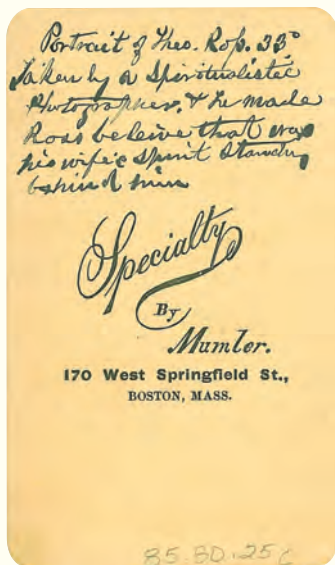 Portrait of Theo. Ross. 33°
Taken by a Spiritualistic
Photographer. & he made
Ross beleive that was
his wife's spirit standing
behind him
Specialty
By
Mumler.
170 West Springfield St.,
BOSTON, MASS.
85.BD.256